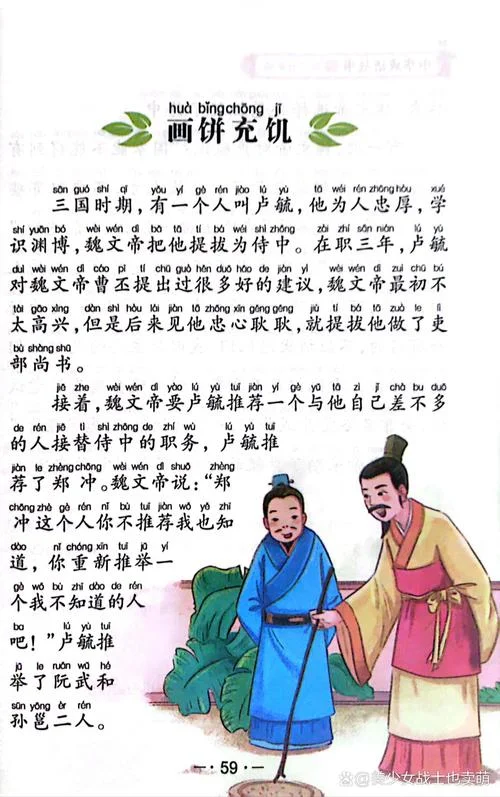 huà bǐng chōng jī
画饼充饥
sān guó shí qī yǒu yí gè rén jiào lú yù tā wéi rén zhōng hòu xué
三国时期，有一个人叫卢毓，他为人忠厚，学
shí yuān bó wèi wén dì bǎ tā tí bá wéi shì zhōng zài zhí sān nián lú yù
识渊博，魏文帝把他提拔为侍中。在职三年，卢毓
duì wèi wén dì cáo pī tí chū guò hěn duō hǎo de jiàn yì wèi wén dì zuì chū bú
对魏文帝曹丕提出过很多好的建议，魏文帝最初不
tài gāo xìng dàn shì hòu lái jiàn tā zhōng xīn gěng gěng jiù tí bá tā zuò le lì
太高兴，但是后来见他忠心耿耿，就提拔他做了吏
bù shàng shū
部尚书。
jiē zhe wèi wén dì yào lú yù tuī jiàn yí gè yǔ tā zì jǐ chà bu duō
接着，魏文帝要卢毓推荐一个与他自己差不多
de rén jiē tì shì zhōng de zhí wù lú yù tuī
的人接替侍中的职务，卢毓推
jiàn le zhèng chōng wèi wén dì shuō zhèng
荐了郑冲。魏文帝说：“郑
chōng zhè ge rén nǐ bù tuī jiàn wǒ yě zhī
冲这个人你不推荐我也知
dào nǐ chóng xīn tuī jǔ yí
道，你重新推举一
gè wǒ bù zhī dào de rén
个我不知道的人
ba lú yù tuī
吧！”卢毓推
jǔ le ruǎn wǔ hé
举了阮武和
sūn yōng èr rén
孙邕二人。
59
@美少女战士也卖萌